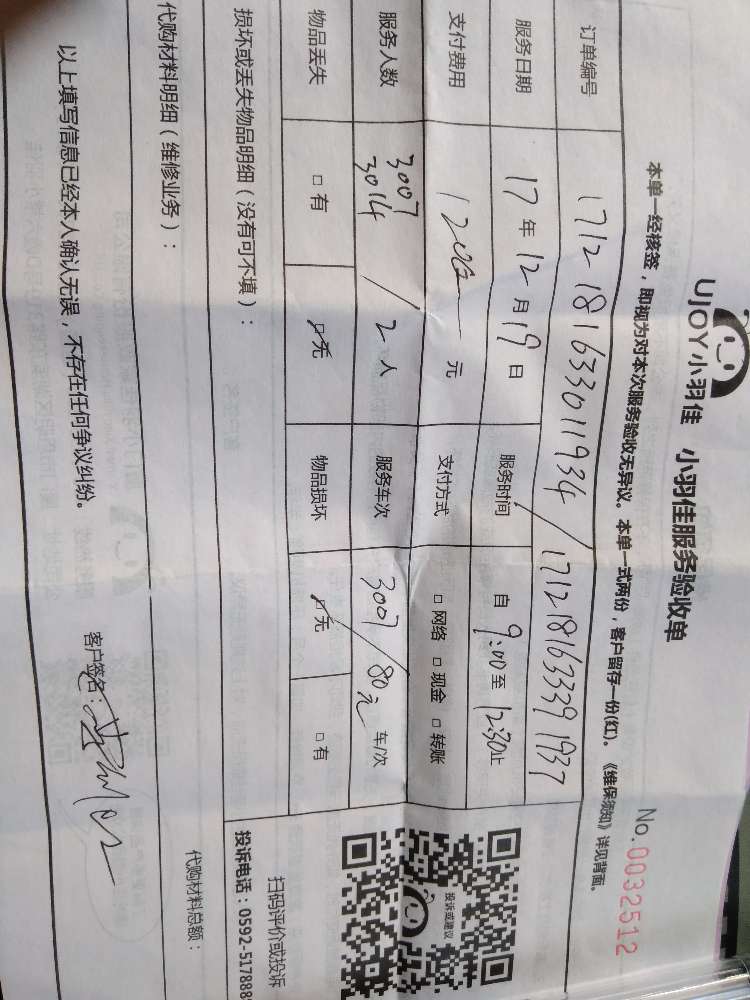 UjoY小羽佳 小羽佳服务验收单
No.0032512
本单一经核签，即视为对本次服务验收无异议。本单一式两份，客户留存一份(红)。《维保须知》详见背面。
订单编号 1712181633011934/1712181633391937
服务日期 17年12月19日 服务时间 自9:00至12:30止
支付费用 元 支付方式 □网络 □现金 □转账
服务人数 3007 3014 /2人 服务车次 3007/80元 车/次
物品丢失 □有 □无 物品损坏 □无 □有
损坏或丢失物品明细（没有可不填）：
代购材料明细（维修业务）：
代购材料总额：
以上填写信息已经本人确认无误，不存在任何争议纠纷。
客户签名：
投诉或建议
扫码评价或投诉
投诉电话：0592-517888